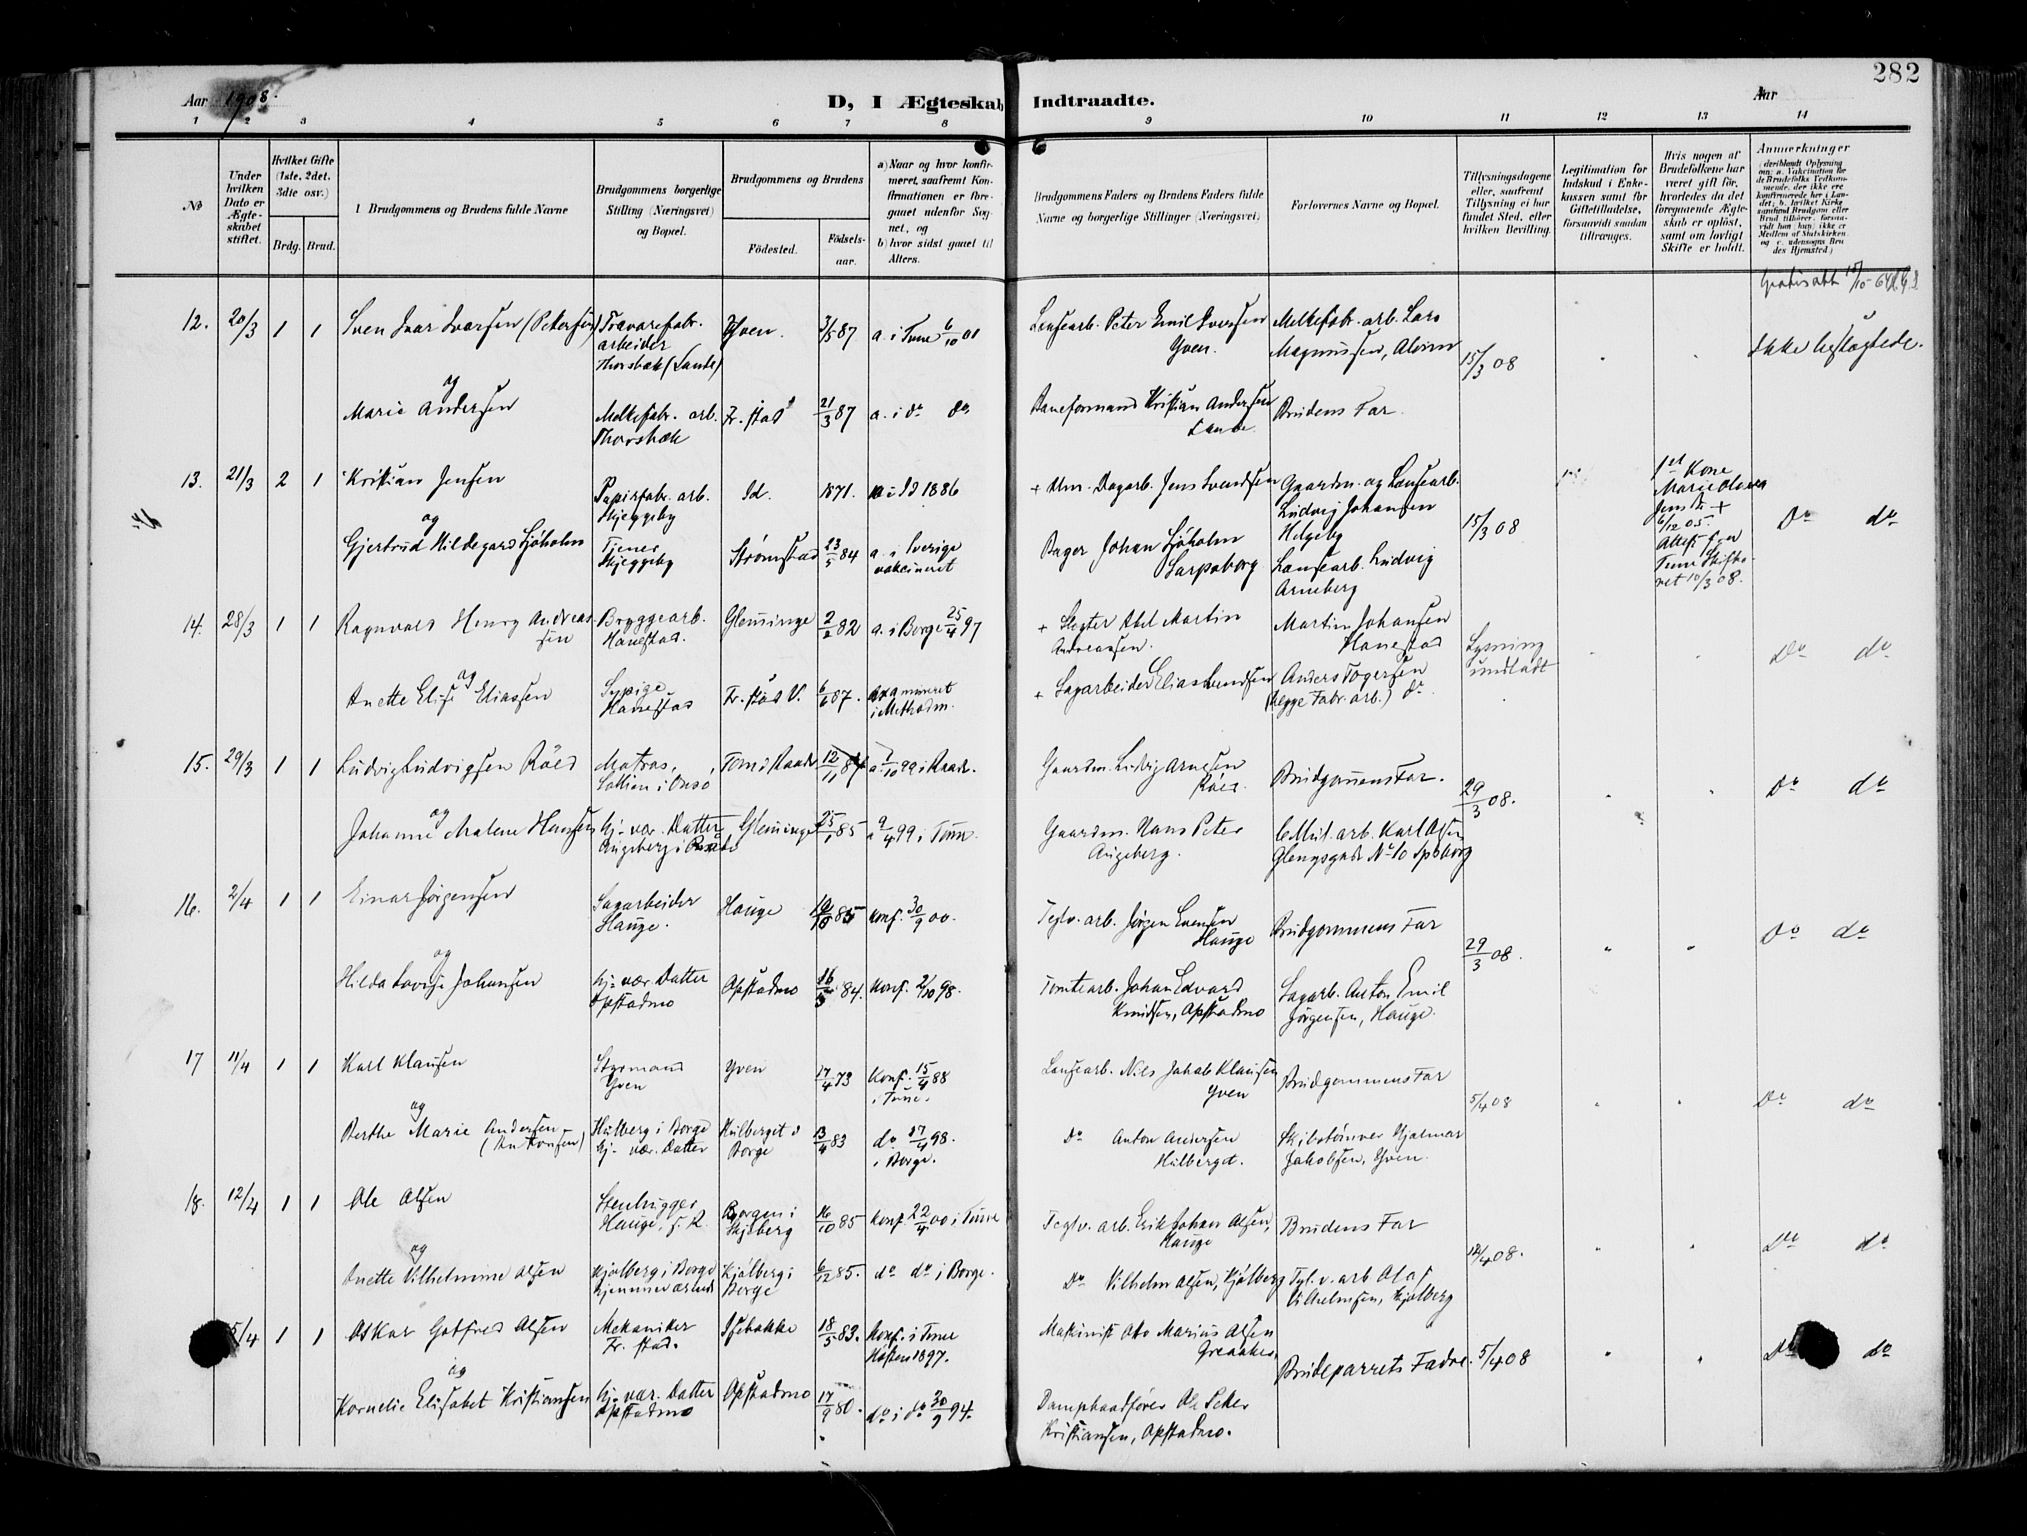 282
Aar 1908.
D, I Ægteskab Indtraadte.
Aar
1 2 3 4 5 6 7 8 9 10 11 12 13 14
No
Under hvilken Dato er Ægteskabet stiftet.
Hvilket Gifte (1ste, 2det, 3die osv.)
Brdg. Brud.
Brudgommens og Brudens fulde Navne
Brudgommens borgerlige Stilling (Næringsvei) og Bopæl.
Brudgommens og Brudens
Fødested.
Fødselsaar.
a) Naar og hvor konfirmeret, saafremt Konfirmationen er foregaaet udenfor Sognet, og
b) hvor sidst gaaet til Alters.
Brudgommens Faders og Brudens Faders fulde Navne og borgerlige Stillinger (Næringsvei)
Forlovernes Navne og Bopæl.
Tillysningsdagene eller, saafremt Tillysning ei har fundet Sted, efter hvilken Bevilling.
Legitimation for Indskud i Enkekassen samt for Giftetilladelse, forsaavidt saadan tiltrænges.
Hvis nogen af Brudefolkene har været gift før, hvorledes da det foregaaende Ægteskab er opløst, samt om lovligt Skifte er holdt.
Anmerkninger
12. 20/3 1 1 Sven Ivar Ivarsen (Petersen) Travarefabr. arbeider Thorsbæk (Lande) Yven. 3/5 87 a. i Tune 6/10 01
Peter Emil Iversen Yven. Melkefabr. arb. Lars Magnussen, Alvim 15/3 08 Ikke beslægtede.
og
Marie Andersen Melkefabr. arb. Thorsbæk Fr. stad 21/3 87 a. i do do
Baneformand Kristian Andersen Lande. Brudens Far.
13. 21/3 2 1 Kristian Jensen Papirfabr. arb. Skjeggeby Id. 1871. a i Id 1886
+ Dagarb. Jens Svendsen Gaardm. og Lausearb. Ludvig Johansen Helgeby 15/3 08
1st Kone Marie Olava + 6/12 05. Attest fra Tune Skifteret 10/3 08.
Do do
og
Gjertrud Hildegard Sjøholm Tjener Skjeggeby Strømstad 23/5 84 a. i Sverige vakcineret
Bager Johan Sjøholm Sarpsborg Lausearb. Ludvig Arneberg
14. 28/3 1 1 Ragnvald Henry Andreassen Bryggearb. Hanestad. Glemminge 2/2 82 a. i Borge 25/4 97
+ Slagter Abel Martin Andreassen. Martin Johansen Hanestad Lysning undladt
Do do
og
Anette Elise Eliassen Sypige Hanestad Fr. stad V. 6/6 87. examineret i Methodm.
+ Sagarbeider Elias Anders Togersen (begge Fabr. arb.) do
15. 29/3 1 1 Ludvig Ludvigsen Röed Matros, i Onsø Tom i Raade 12/11 84 a 1/10 99 i Raade.
Gaardm. Ludvig Arnesen Röed. Brudgommens Far. 29/3 08.
Do do
og
Johanne Malene Hansen Hj. vær. Datter Augeberg i Glemminge 25/1 85 a 9/4 99 i Tune.
Gaardm. Hans Peter Augeberg. arb. Karl Olsen Glengsgade No 10 Spsborg
16. 2/4 1 1 Einar Jörgensen Sagarbeider Hauge. Hauge 19/10 85 Konf. 30/9 00.
Teglv. arb. Jörgen Evensen Hauge Brudgommens Far 29/3 08.
Do do
og
Hilda Lovise Johansen Hj. vær. Datter Opstadmo Opstadmo 16/5 84. Konf. 2/10 98.
Tomtearb. Johan Edvard Knudsen, Opstadmo Sagarb. Anton Emil Jörgensen, Hauge.
17 11/4 1 1 Karl Klausen Styrmand Yven Yven 17/4 73 Konf. 15/4 88 i Tune.
Lausearb. Nils Jakob Klausen Yven Brudgommens Far 5/4 08
Do do
og
Berthe Marie Andersen Hulberg i Borge Hj. vær. Datter Hulberget i Borge 13/4 83 do 17/4 98. i Borge.
Do Anton Andersen Hulberget. Skibstømrer Hjalmar Jakobsen, Yven.
18. 12/4 1 1 Ole Olsen Stenhugger Hauge, Borgen i Skjeberg 16/10 85 Konf. 22/4 00 i Tune
Teglv. arb. Erik Johan Olsen, Hauge Brudens Far 12/4 08.
Do do
og
Anette Vilhelmine Olsen Kjølberg i Borge Hjemmeværende Kjølberg i Borge 6/12 85. do do i Borge.
Do Vilhelm Olsen, Kjølberg Tgl. v. arb Olaf Vilhelmsen, Kjølberg
5/4 1 1 Oskar Gotfred Olsen Mekaniker Fr. stad. 18/5 83. Konf. i Tune Høsten 1897.
Maskinist Marius Olsen Greaaker. Brudeparrets Fædre. 5/4 08
Do do
og
Kornelie Elisabet Kristiansen Hj. vær. Datter Opstadmo Opstadmo 17/9 80. do i do 30/9 94.
Dampbaadfører Ole Peter Kristiansen, Opstadmo.